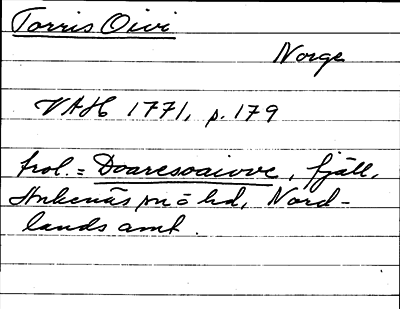 Torris Oivi
Norge
VAH 1771, p. 179
trol. = Doaresoaivve, fjäll,
sn = o hd, Nord-
lands amt.